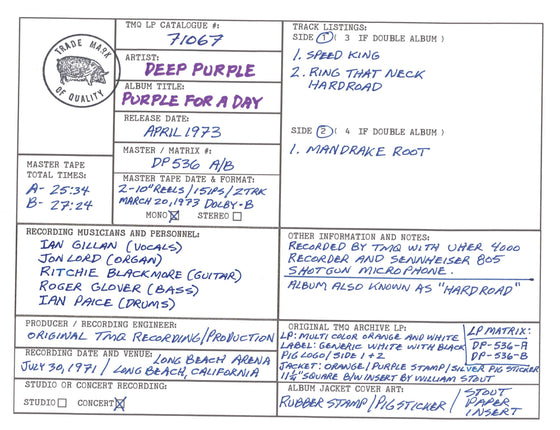 TRADE MARK
OF QUALITY
TMQ LP CATALOGUE #:
71067
ARTIST:
DEEP PURPLE
ALBUM TITLE:
PURPLE FOR A DAY
RELEASE DATE:
APRIL 1973
MASTER / MATRIX #:
DP 536 A/B
MASTER TAPE
TOTAL TIMES:
A- 25:34
B- 27:24
MASTER TAPE DATE & FORMAT:
2-10" REELS/15IPS/2TRK
MARCH 20, 1973 DOLBY-B
MONO STEREO
TRACK LISTINGS:
SIDE 1 ( 3 IF DOUBLE ALBUM )
1. SPEED KING
2. RING THAT NECK
HARDROAD
SIDE 2 ( 4 IF DOUBLE ALBUM )
1. MANDRAKE ROOT
RECORDING MUSICIANS AND PERSONNEL:
IAN GILLAN (VOCALS)
JON LORD (ORGAN)
RITCHIE BLACKMORE (GUITAR)
ROGER GLOVER (BASS)
IAN PAICE (DRUMS)
OTHER INFORMATION AND NOTES:
RECORDED BY TMQ WITH UHER 4000
RECORDER AND SENNHEISER 805
SHOTGUN MICROPHONE.
ALBUM ALSO KNOWN AS "HARDROAD"
PRODUCER / RECORDING ENGINEER:
ORIGINAL TMQ RECORDING/PRODUCTION
RECORDING DATE AND VENUE:
JULY 30, 1971 / LONG BEACH ARENA
LONG BEACH, CALIFORNIA
STUDIO OR CONCERT RECORDING:
STUDIO CONCERT
ORIGINAL TMQ ARCHIVE LP:
LP: MULTI COLOR ORANGE AND WHITE
LABEL: GENERIC WHITE WITH BLACK
PIG LOGO/SIDE 1+2
JACKET: ORANGE/PURPLE STAMP/SILVER PIG STICKER
11¼" SQUARE B/W INSERT BY WILLIAM STOUT
LP MATRIX:
DP-536-A
DP-536-B
ALBUM JACKET COVER ART:
RUBBER STAMP/PIG STICKER / STOUT
PAPER
INSERT